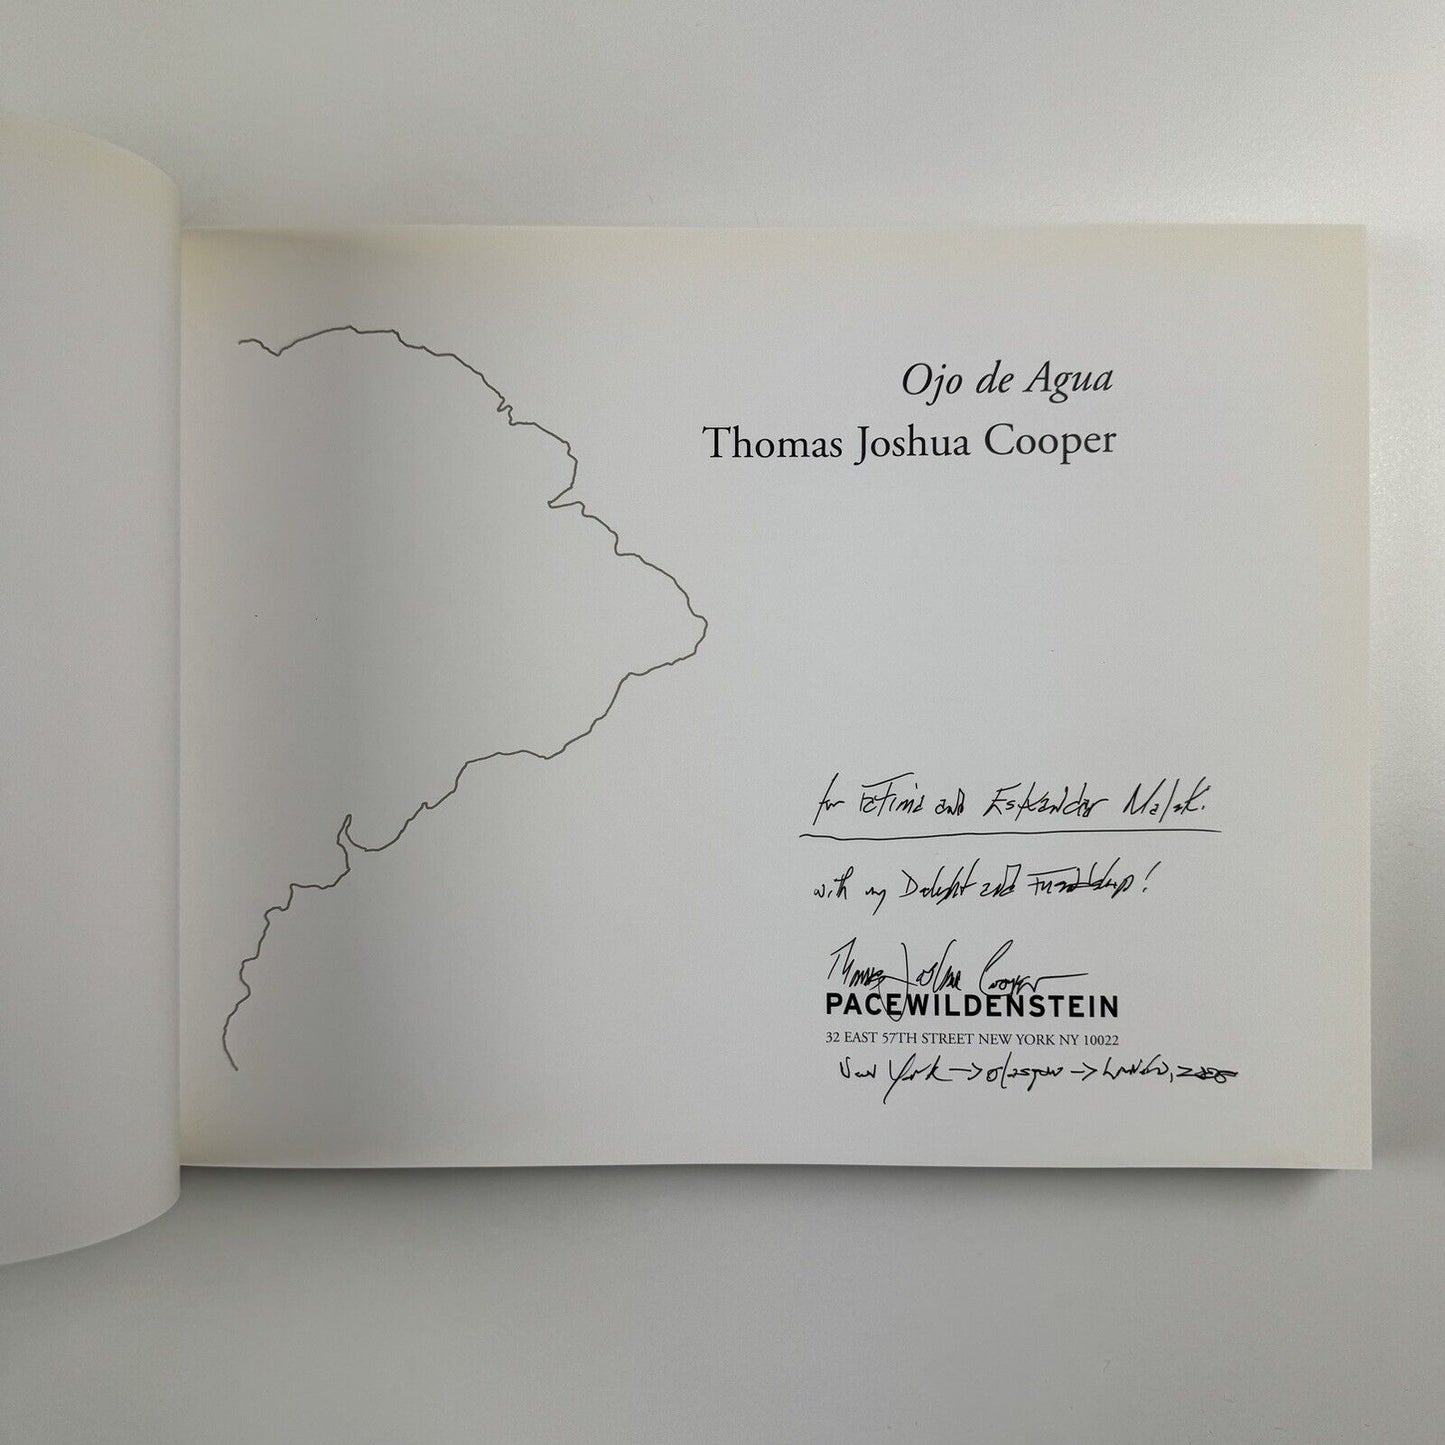 Ojo de Agua
Thomas Joshua Cooper
for Fatima and Eskandar Maleki.
with my Delight and Friendship!
Thomas Joshua Cooper
PACEWILDENSTEIN
32 EAST 57TH STREET NEW YORK NY 10022
New York → Glasgow → London,